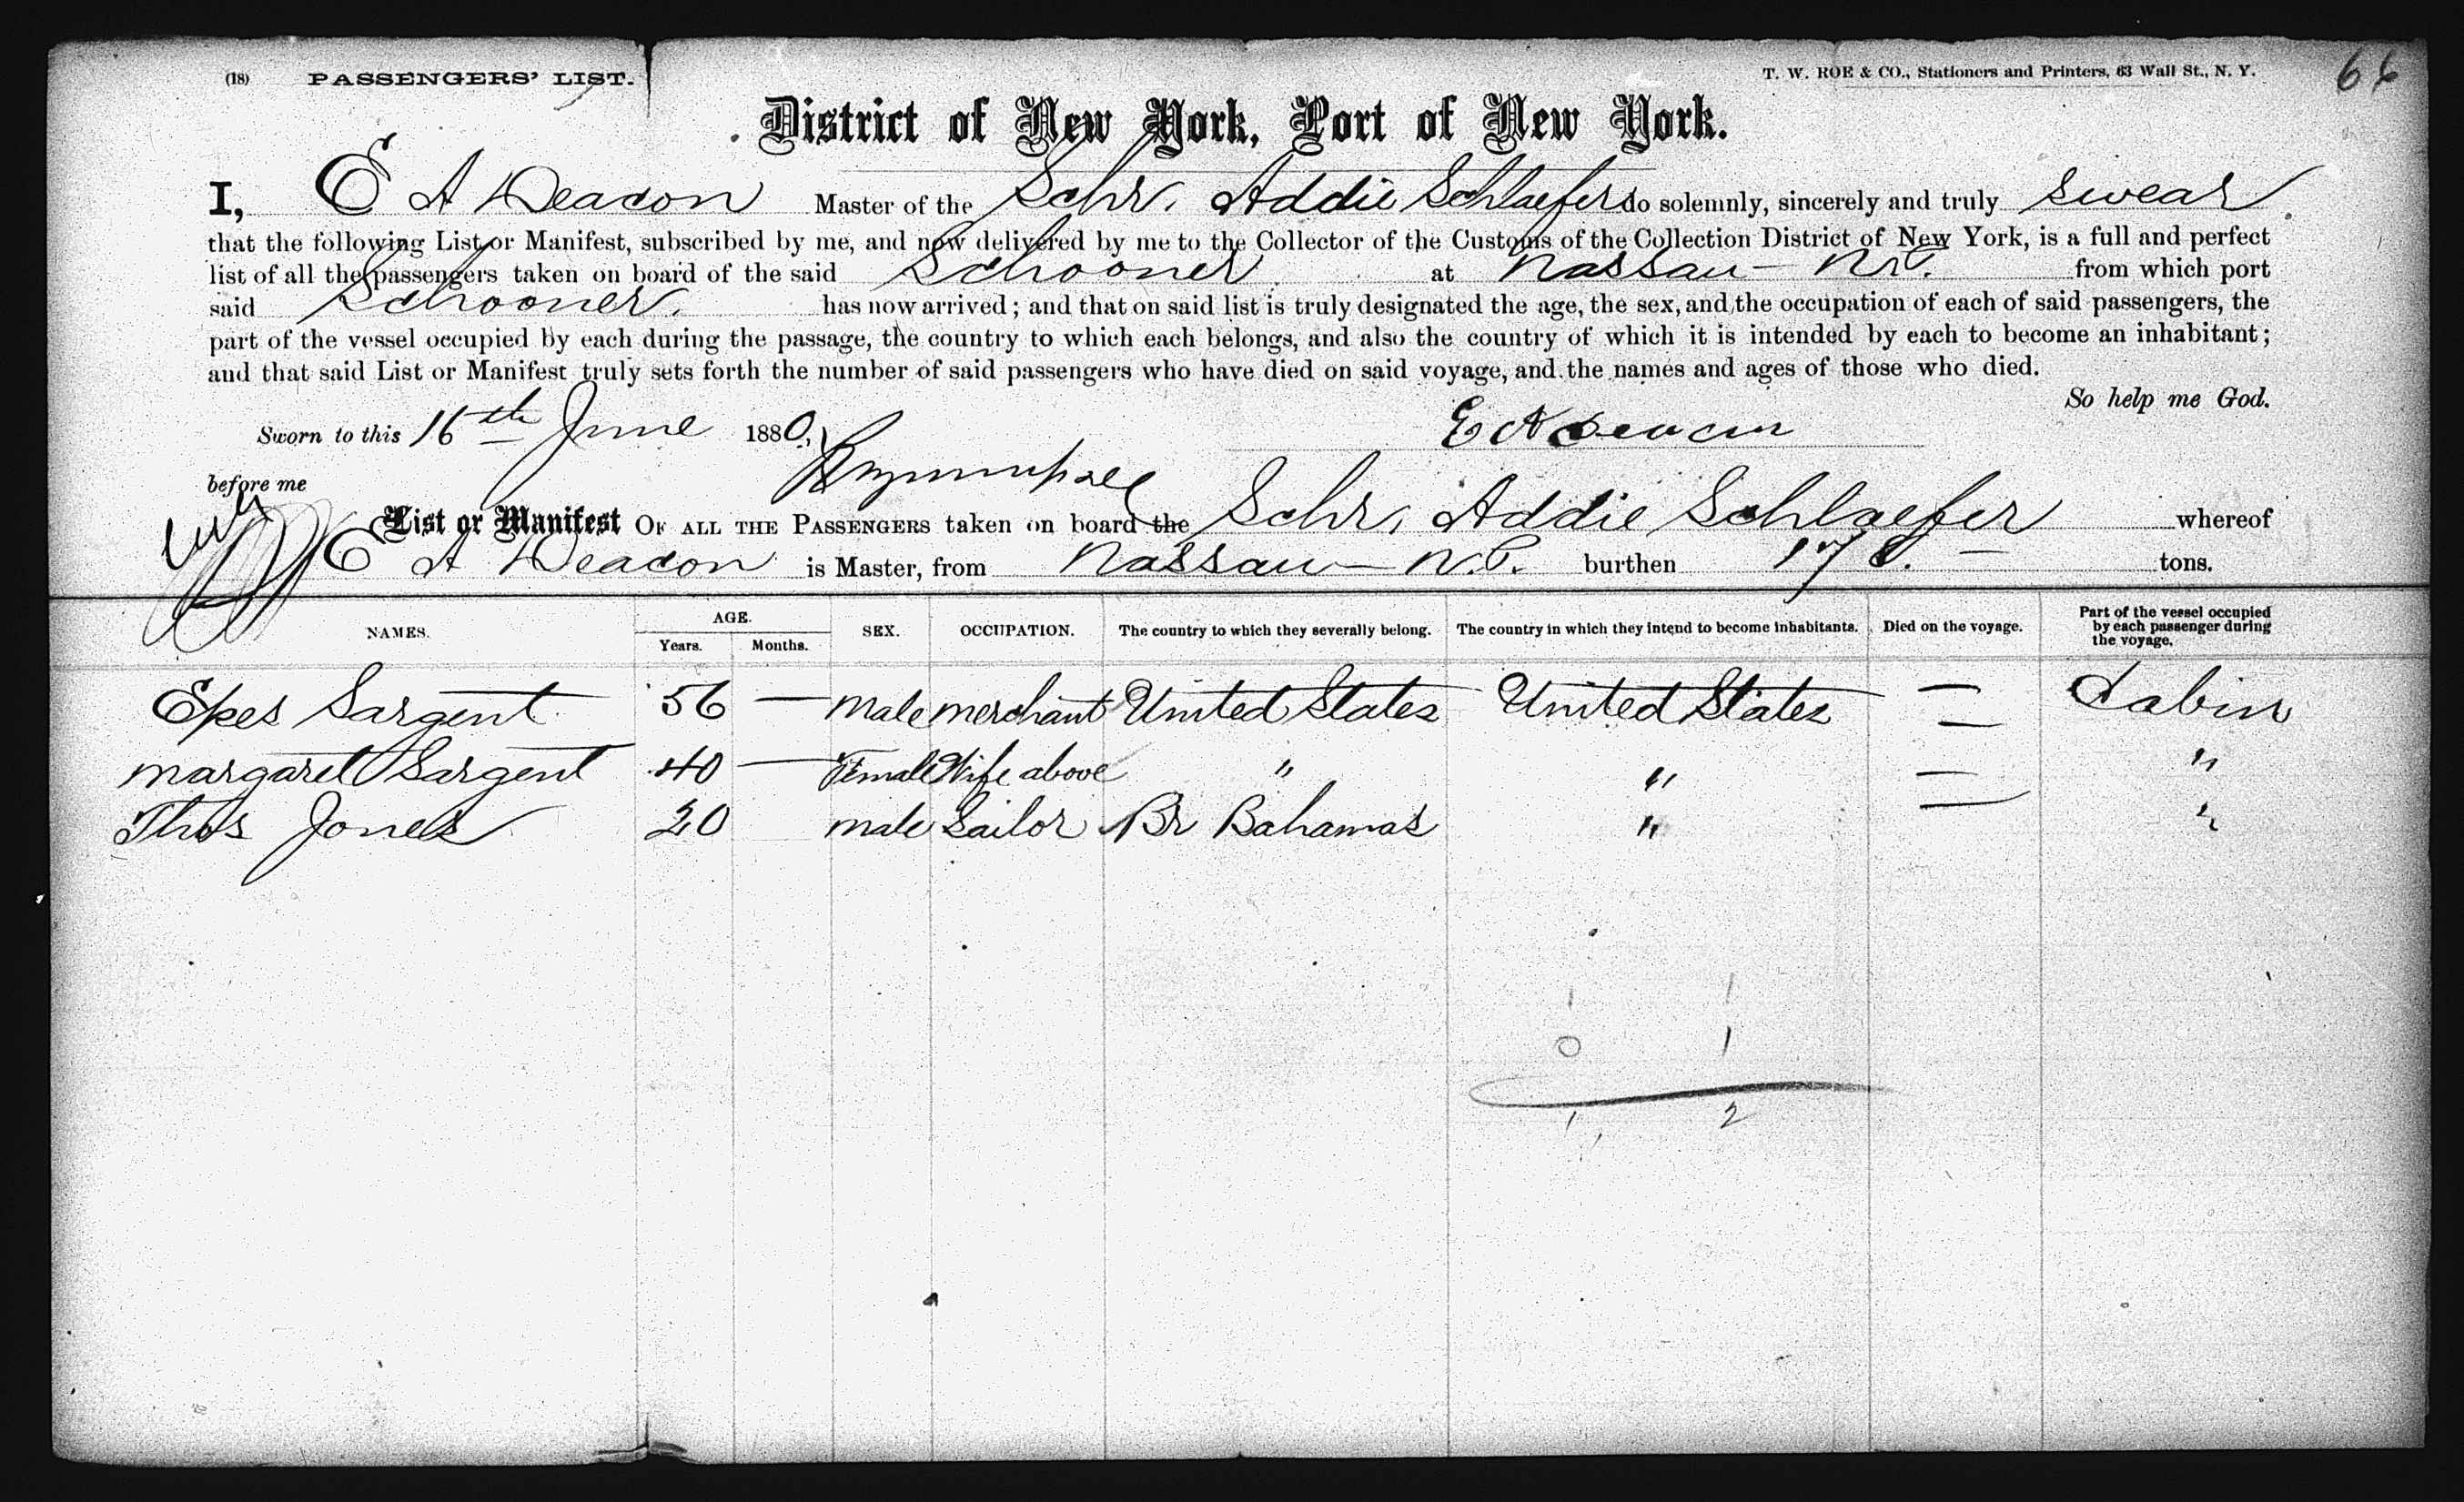 (18) PASSENGERS' LIST.
T. W. ROE & CO., Stationers and Printers, 63 Wall St., N. Y.
66
District of New York, Port of New York.
I, E A Deacon Master of the Schr. Addie Schlaefer do solemnly, sincerely and truly swear
that the following List or Manifest, subscribed by me, and now delivered by me to the Collector of the Customs of the Collection District of New York, is a full and perfect
list of all the passengers taken on board of the said Schooner at Nassau - N.P. from which port
said Schooner. has now arrived; and that on said list is truly designated the age, the sex, and the occupation of each of said passengers, the
part of the vessel occupied by each during the passage, the country to which each belongs, and also the country of which it is intended by each to become an inhabitant;
and that said List or Manifest truly sets forth the number of said passengers who have died on said voyage, and the names and ages of those who died.
So help me God.
Sworn to this 16th June 1880, E A Deacon
before me
List or Manifest OF ALL THE PASSENGERS taken on board the Schr. Addie Schlaefer whereof
E A Deacon is Master, from Nassau - N.P. burthen 178. tons.
NAMES. AGE. Years. Months. SEX. OCCUPATION. The country to which they severally belong. The country in which they intend to become inhabitants. Died on the voyage. Part of the vessel occupied by each passenger during the voyage.
Epes Sargent 56 — Male merchant United States United States — Cabin
Margaret Sargent 40 — Female Wife above " " — "
Thos Jones 20 male Sailor Br Bahamas " — "
1 1
0 1
1 2